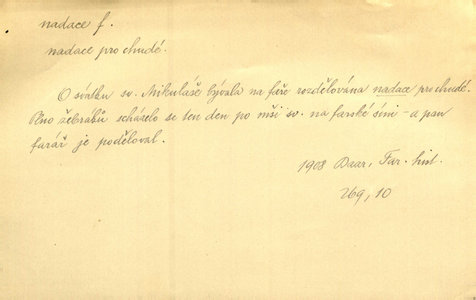 nadace f.
nadace pro chudé.
O svátku sv. Mikuláše bývala na faře rozdělována nadace pro chudé.
Plno žebráků scházelo se ten den po mši sv. na farské síni - a pan
farář je poděloval.
1908 Baar, Far. hist.
269, 10